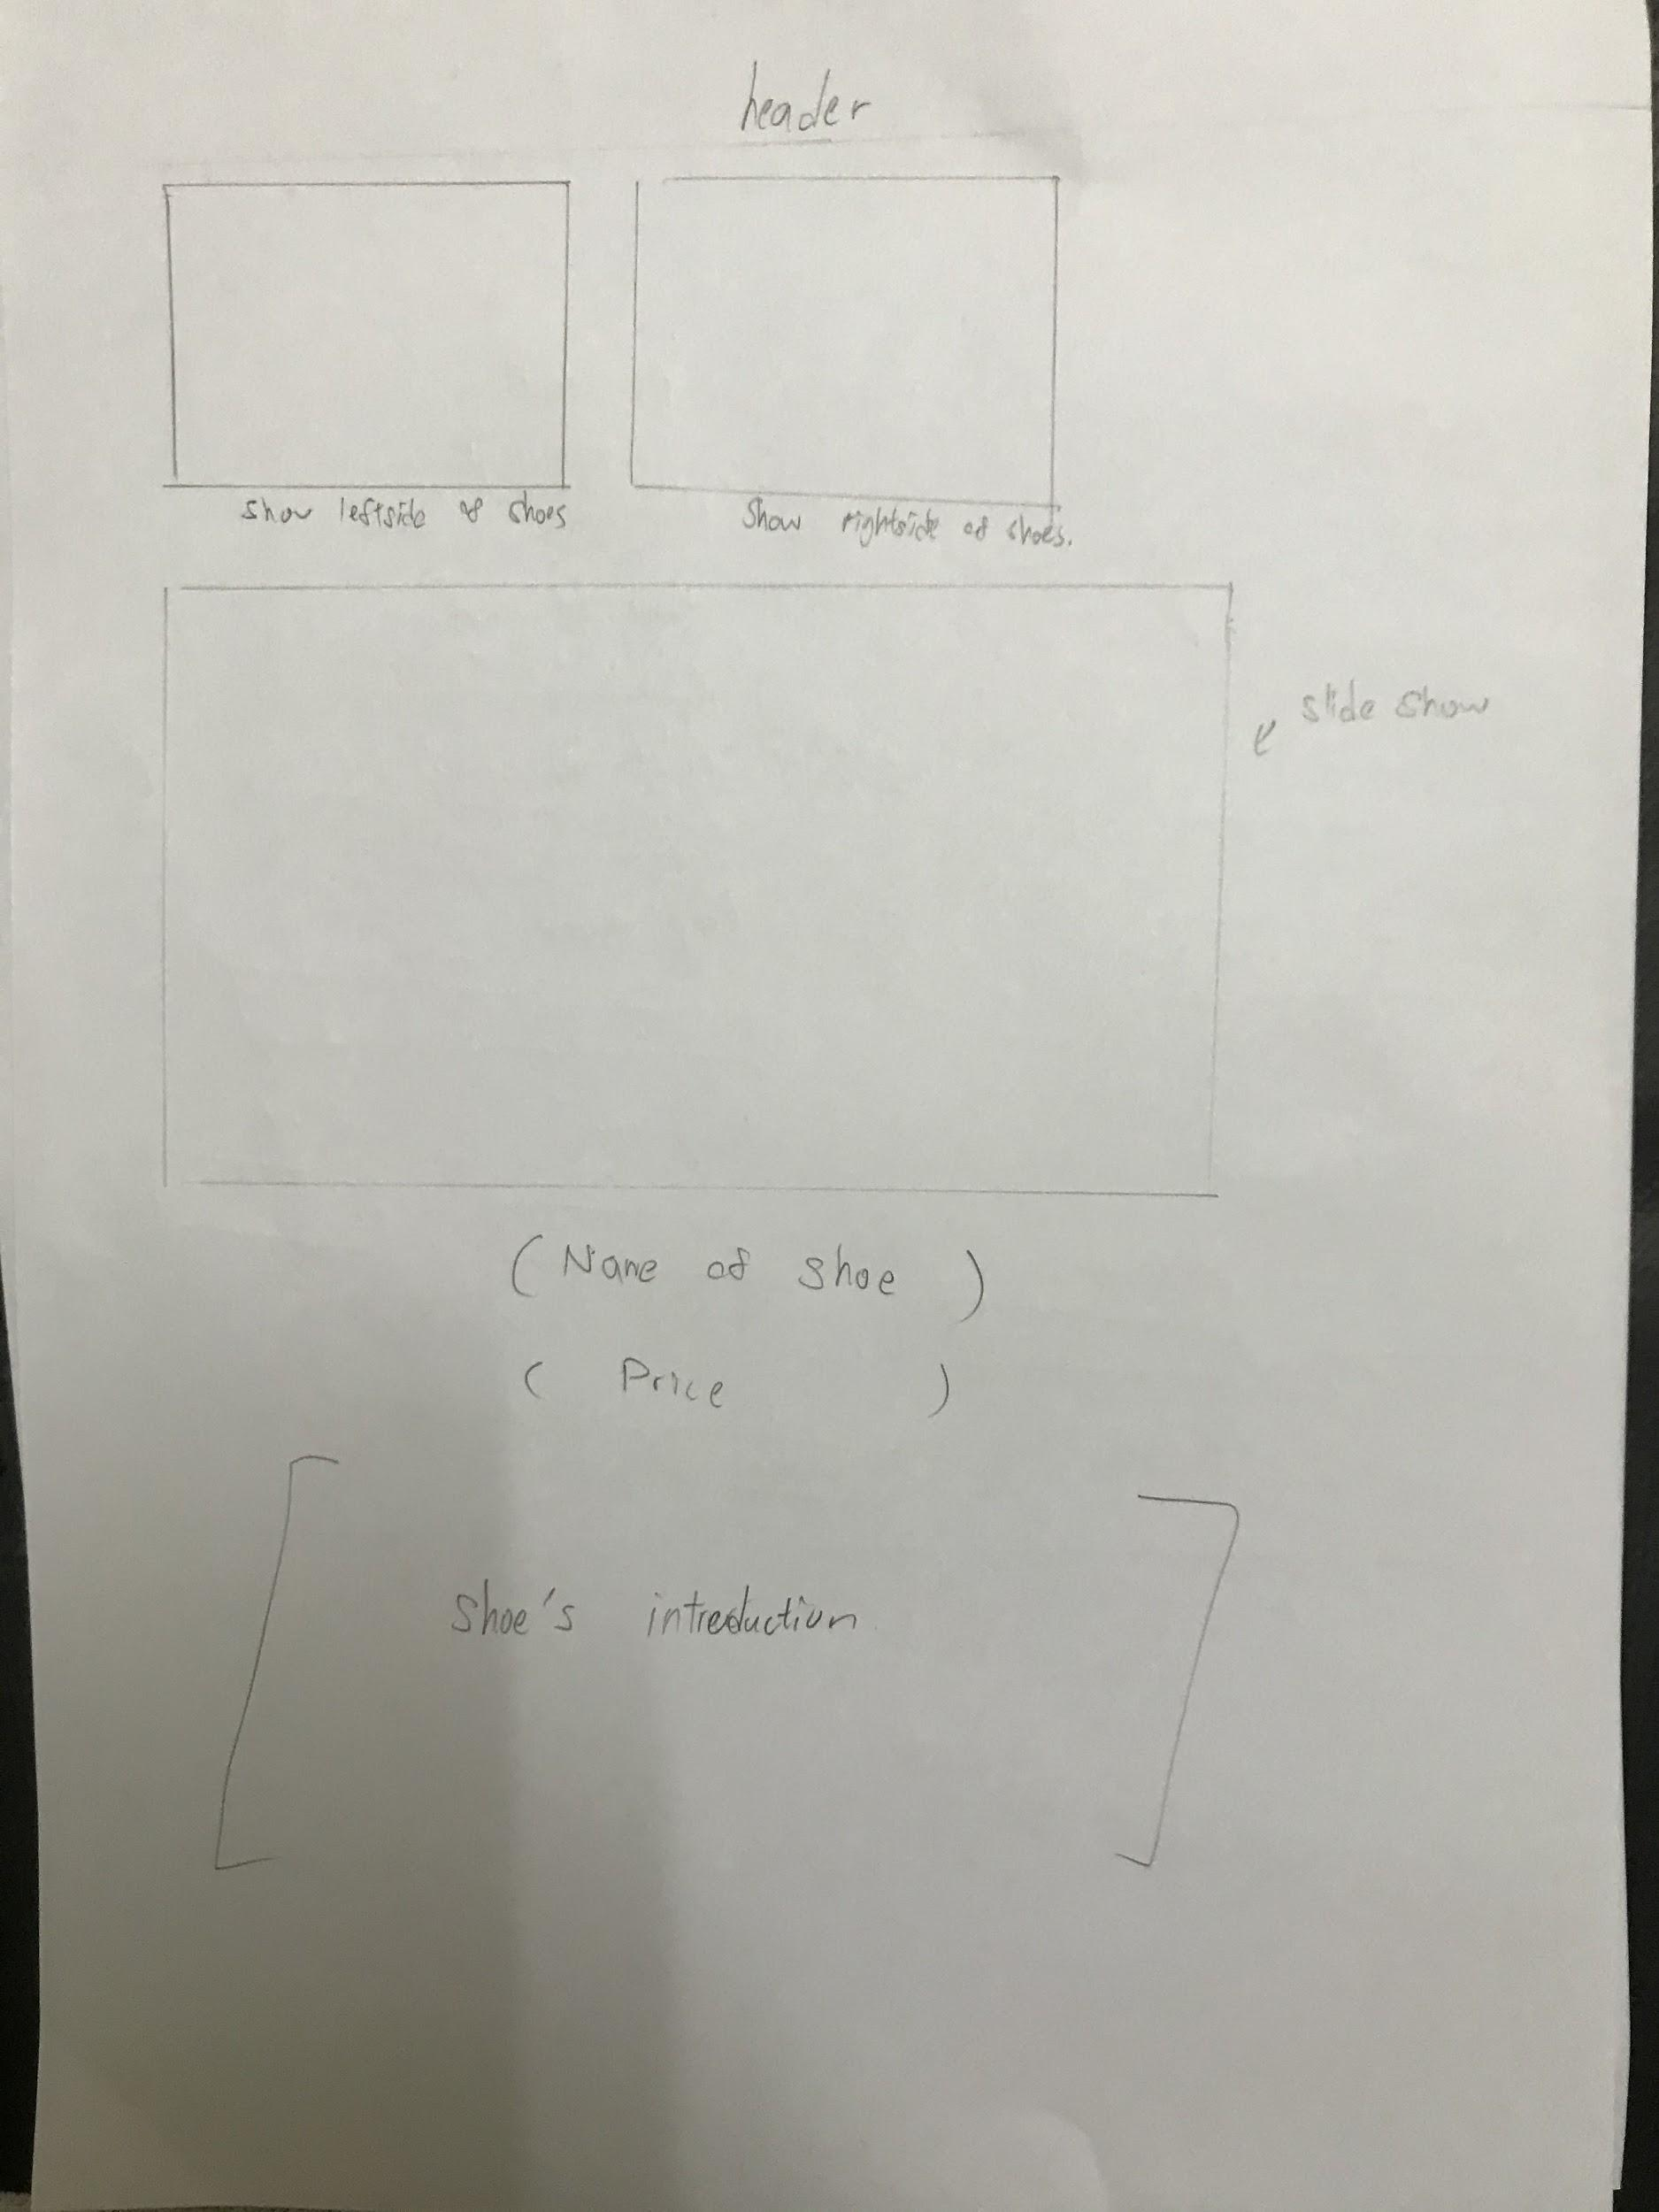 header
Show leftside of shoes
Show rightside of shoes.
slide show
( Name of shoe )
( Price )
Shoe's introduction